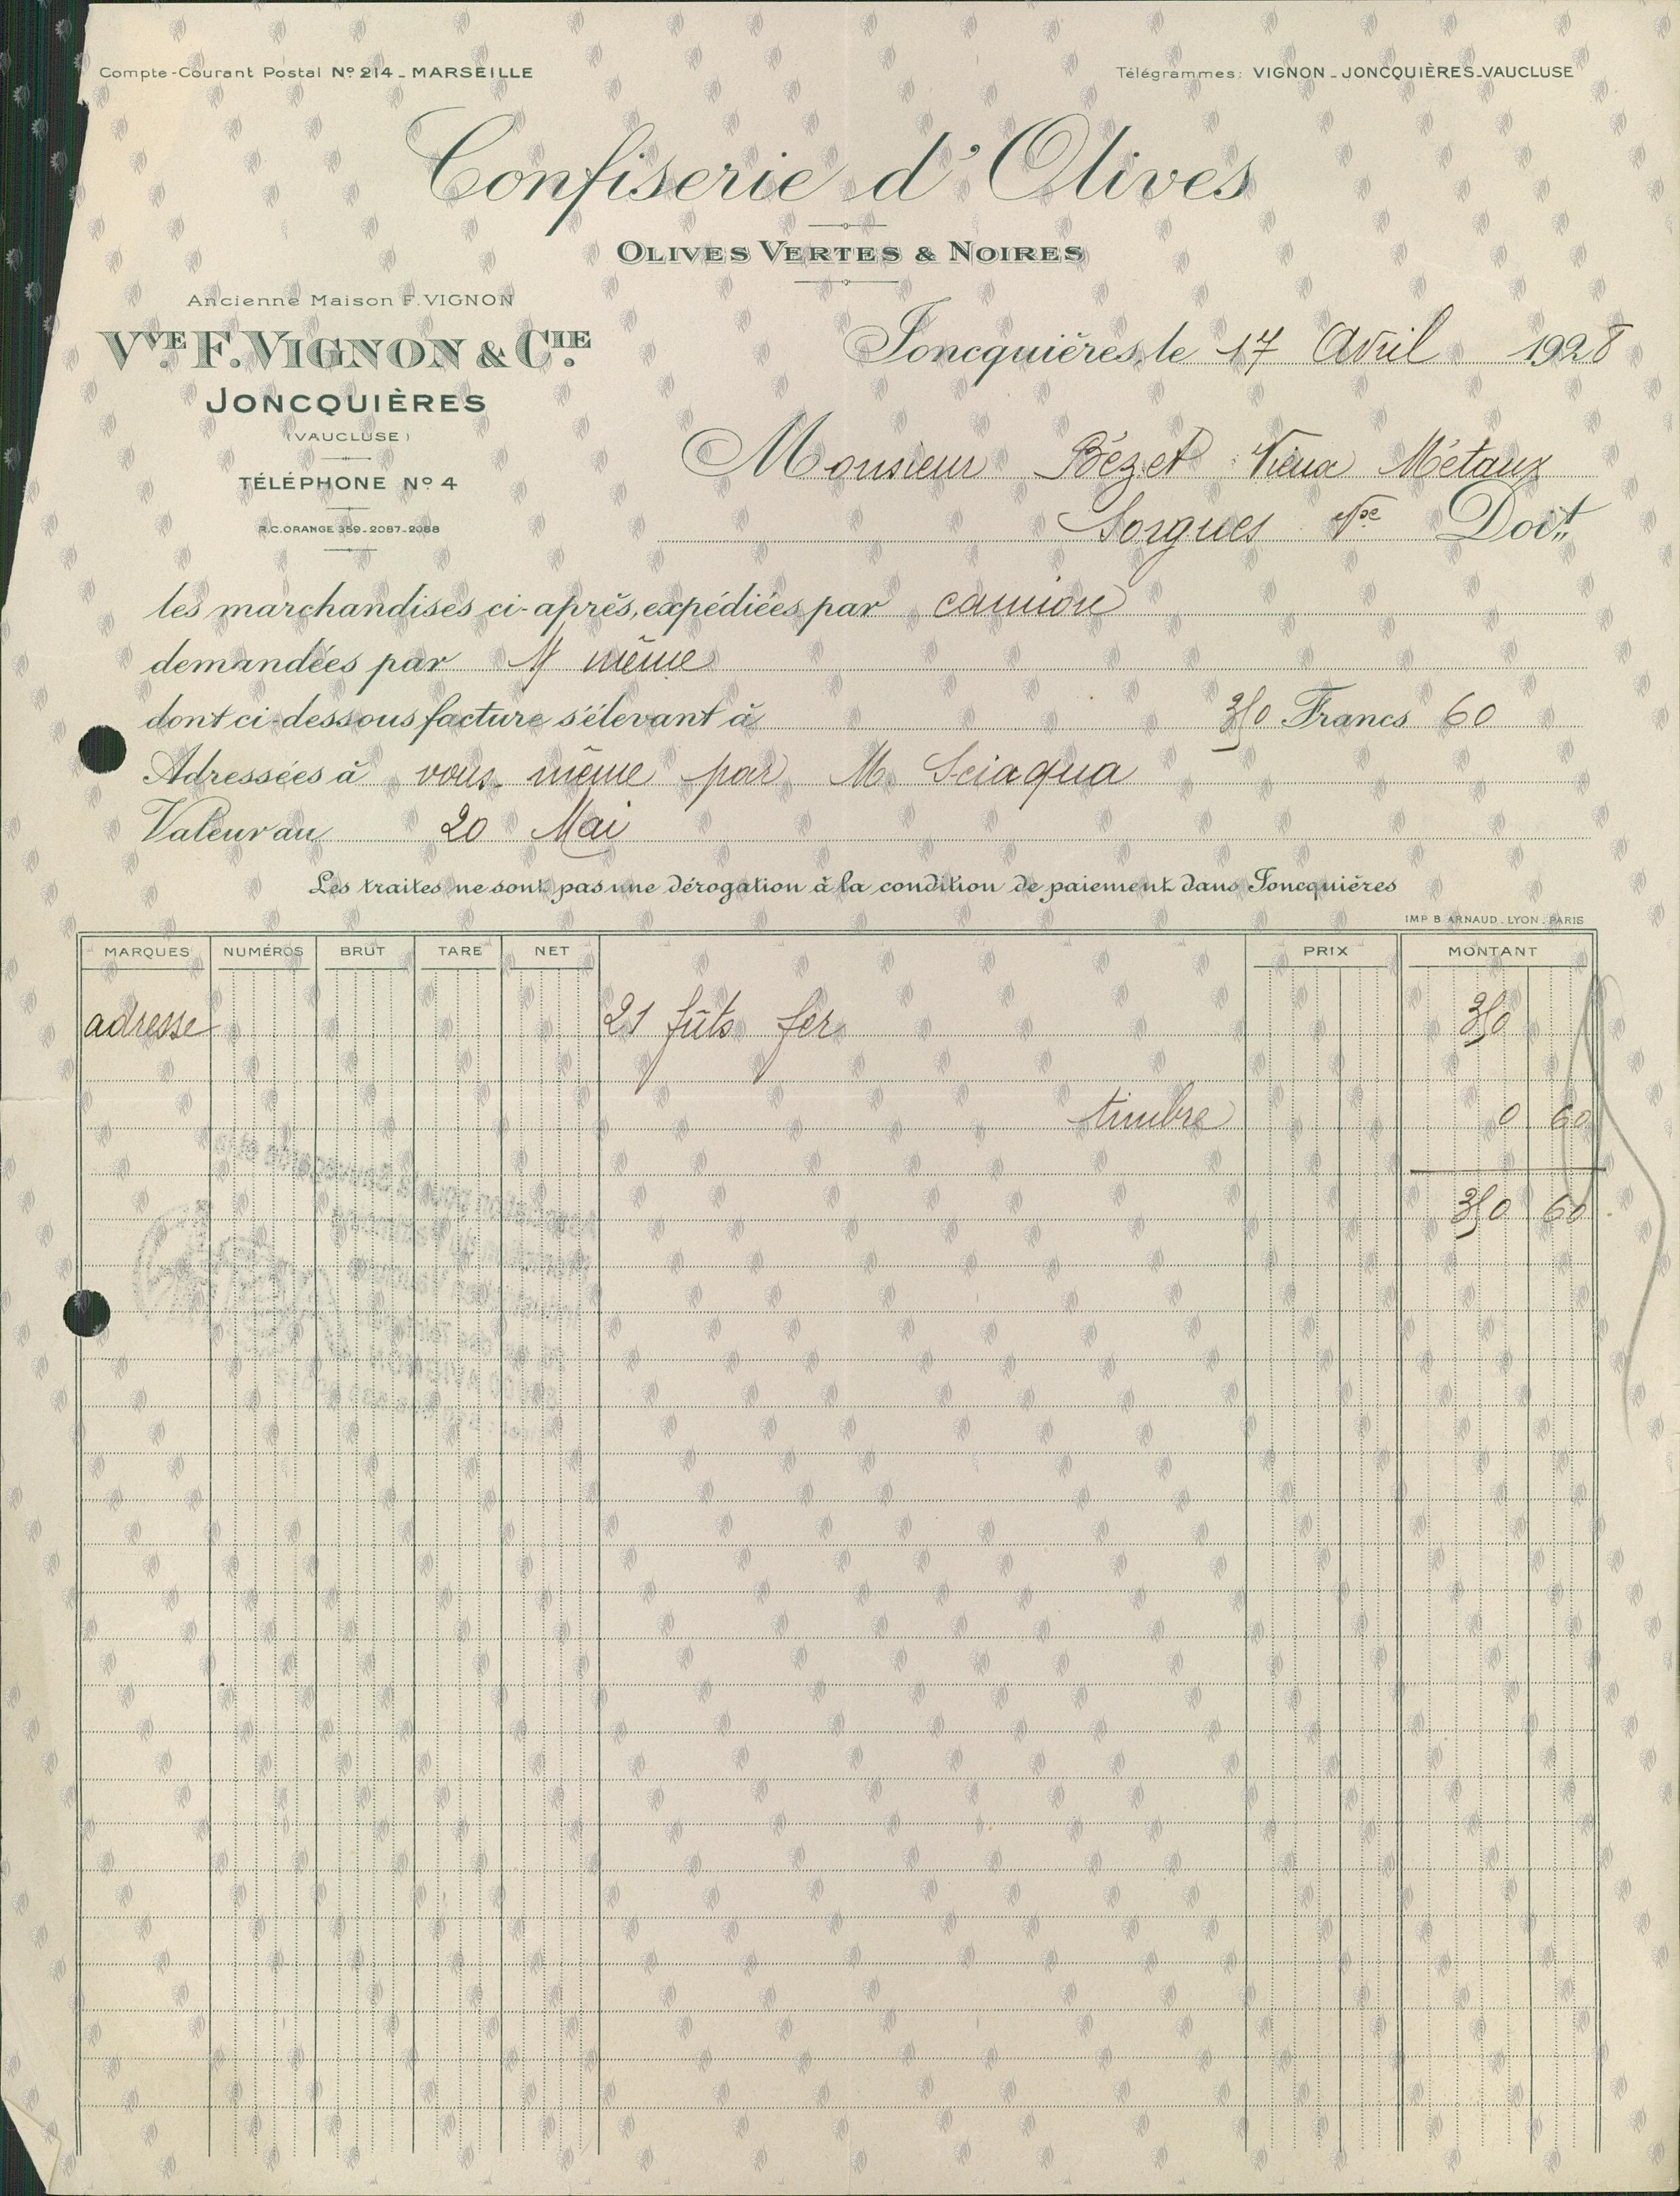 Compte-Courant Postal Nº 214 - MARSEILLE
Télégrammes: VIGNON - JONCQUIÈRES - VAUCLUSE
Confiserie d'Olives
OLIVES VERTES & NOIRES
Ancienne Maison F. VIGNON
VVE F. VIGNON & CIE
JONCQUIÈRES
(VAUCLUSE)
TÉLÉPHONE Nº 4
R.C. ORANGE 359-2087-2088
Joncquières, le 17 Avril 1928
Monsieur Bézet Vieux Métaux
Sorgues Vse Doit
les marchandises ci-après, expédiées par camion
demandées par V même
dont ci-dessous facture s'élevant à 350 Francs 60
Adressées à vous même par M. Sciaqua
Valeur au 20 Mai
Les traites ne sont pas une dérogation à la condition de paiement dans Joncquières
IMP B. ARNAUD - LYON - PARIS
MARQUES NUMÉROS BRUT TARE NET PRIX MONTANT
adresse 21 fûts fer 350
timbre 0 60
350 60